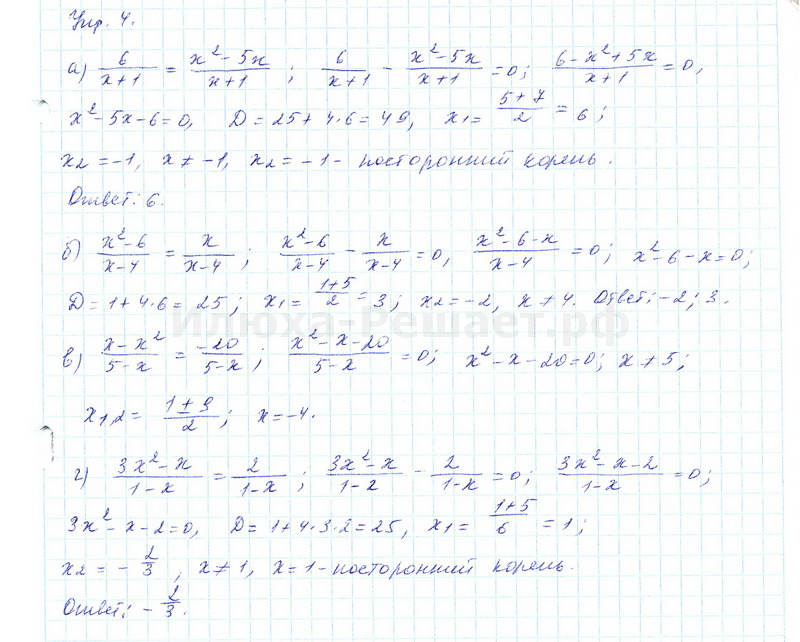 Упр. 4.
а) 6/(x+1) = (x²-5x)/(x+1) ; 6/(x+1) - (x²-5x)/(x+1) = 0; (6-x²+5x)/(x+1) = 0,
x²-5x-6=0, D=25+4·6=49, x₁= (5+7)/2 = 6;
x₂=-1, x≠-1, x₂=-1 - посторонний корень.
Ответ: 6.
б) (x²-6)/(x-4) = x/(x-4) ; (x²-6)/(x-4) - x/(x-4) = 0, (x²-6-x)/(x-4) = 0; x²-6-x=0;
D=1+4·6=25; x₁= (1+5)/2 = 3; x₂=-2, x≠4. Ответ: -2; 3.
Илюха-Решает.рф
в) (x-x²)/(5-x) = -20/(5-x) ; (x²-x-20)/(5-x) = 0; x²-x-20=0; x≠5;
x₁,₂= (1±9)/2 ; x=-4.
г) (3x²-x)/(1-x) = 2/(1-x) ; (3x²-x)/(1-x) - 2/(1-x) = 0; (3x²-x-2)/(1-x) = 0;
3x²-x-2=0, D=1+4·3·2=25, x₁= (1+5)/6 = 1;
x₂ = - 2/3 , x≠1, x=1 - посторонний корень.
Ответ: - 2/3.